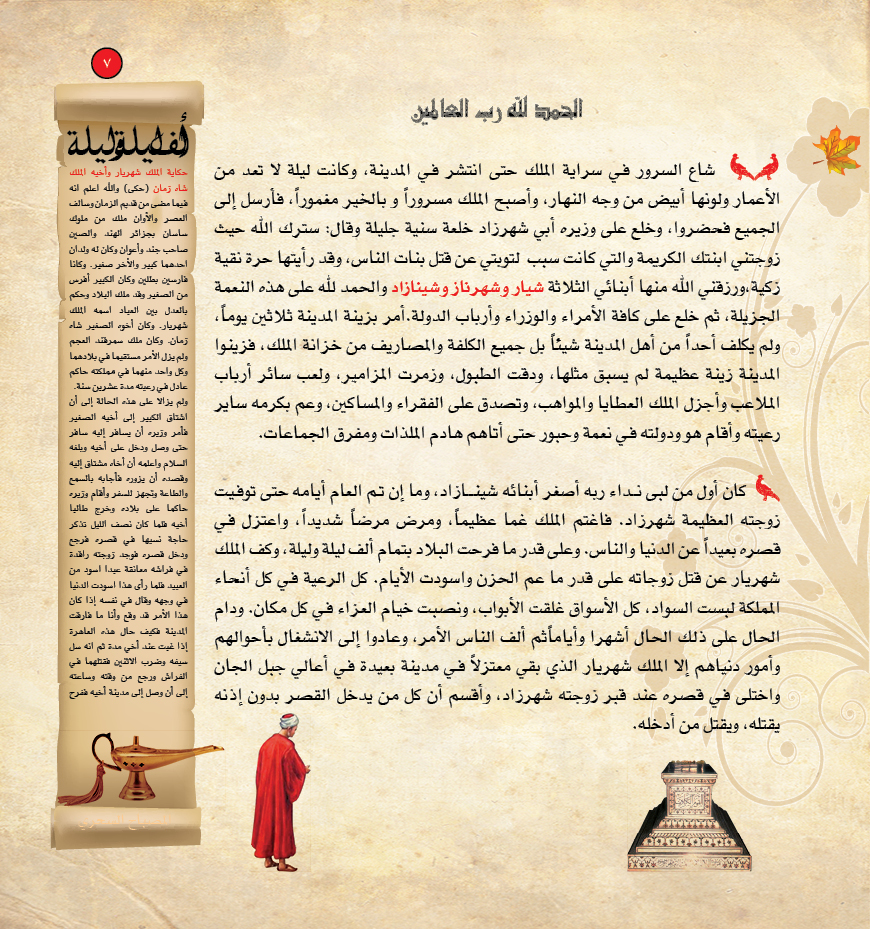 ٧
الحمد لله رب العالمين
شاع السرور في سراية الملك حتى انتشر في المدينة، وكانت ليلة لا تعد من
الأعمار ولونها أبيض من وجه النهار، وأصبح الملك مسروراً و بالخير مغموراً، فأرسل إلى
الجميع فحضروا، وخلع على وزيره أبي شهرزاد خلعة سنية جليلة وقال: سترك الله حيث
زوجتني ابنتك الكريمة والتي كانت سبب لتوبتي عن قتل بنات الناس، وقد رأيتها حرة نقية
زكية،ورزقني الله منها أبنائي الثلاثة شيار وشهرناز وشينازاد والحمد لله على هذه النعمة
الجزيلة، ثم خلع على كافة الأمراء والوزراء وأرباب الدولة.أمر بزينة المدينة ثلاثين يوماً،
ولم يكلف أحداً من أهل المدينة شيئاً بل جميع الكلفة والمصاريف من خزانة الملك، فزينوا
المدينة زينة عظيمة لم يسبق مثلها، ودقت الطبول، وزمرت المزامير، ولعب سائر أرباب
الملاعب وأجزل الملك العطايا والمواهب، وتصدق على الفقراء والمساكين، وعم بكرمه ساير
رعيته وأقام هو ودولته في نعمة وحبور حتى أتاهم هادم الملذات ومفرق الجماعات.
كان أول من لبى نـداء ربه أصغر أبنائه شينــازاد، وما إن تم العام أيامه حتى توفيت
زوجته العظيمة شهرزاد. فاغتم الملك غما عظيماً، ومرض مرضاً شديداً، واعتزل في
قصره بعيداً عن الدنيا والناس. وعلى قدر ما فرحت البلاد بتمام ألف ليلة وليلة، وكف الملك
شهريار عن قتل زوجاته على قدر ما عم الحزن واسودت الأيام. كل الرعية في كل أنحاء
المملكة لبست السواد، كل الأسواق غلقت الأبواب، ونصبت خيام العزاء في كل مكان. ودام
الحال على ذلك الحال أشهرا وأياماًثم ألف الناس الأمر، وعادوا إلى الانشغال بأحوالهم
وأمور دنياهم إلا الملك شهريار الذي بقي معتزلاً في مدينة بعيدة في أعالي جبل الجان
واختلى في قصره عند قبر زوجته شهرزاد، وأقسم أن كل من يدخل القصر بدون إذنه
يقتله، ويقتل من أدخله.
ألف ليلة وليلة
حكاية الملك شهريار وأخيه الملك
شاه زمان (حكى) والله اعلم انه
فيما مضى من قديم الزمان وسالف
العصر والأوان ملك من ملوك
ساسان بجزائر الهند والصين
صاحب جند وأعوان وكان له ولدان
احدهما كبير والأخر صغير. وكانا
فارسين بطلين وكان الكبير أفرس
من الصغير وقد ملك البلاد وحكم
بالعدل بين العباد اسمه الملك
شهريار. وكان أخوه الصغير شاه
زمان. وكان ملك سمرقند العجم
ولم يزل الأمر مستقيما في بلادهما
وكل واحد منهما في مملكته حاكم
عادل في رعيته مدة عشرين سنة.
ولم يزالا على هذه الحالة إلى أن
اشتاق الكبير إلى أخيه الصغير
فأمر وزيره أن يسافر إليه سافر
حتى وصل ودخل على أخيه وبلغه
السلام واعلمه أن أخاه مشتاق إليه
وقصده أن يزوره فأجابه بالسمع
والطاعة وتجهز للسفر وأقام وزيره
حاكما على بلاده وخرج طالبا
أخيه فلما كان نصف الليل تذكر
حاجة نسيها في قصره فرجع
ودخل قصره فوجد زوجته راقدة
في فراشه معانقة عبدا اسود من
العبيد فلما رأى هذا اسودت الدنيا
في وجهه وقال في نفسه إذا كان
هذا الأمر قد وقع وأنا ما فارقت
المدينة فكيف حال هذه العاهرة
إذا غبت عند أخي مدة ثم انه سل
سيفه وضرب الاثنين فقتلهما في
الفراش ورجع من وقته وساعته
إلى أن وصل إلى مدينة أخيه ففرح